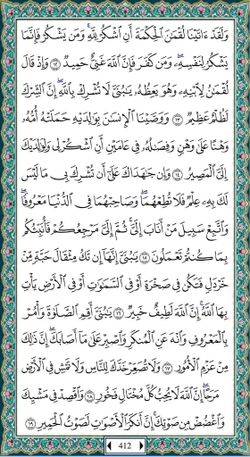 وَلَقَدْ ءَاتَيْنَا لُقْمَٰنَ ٱلْحِكْمَةَ أَنِ ٱشْكُرْ لِلَّهِ ۚ وَمَن يَشْكُرْ فَإِنَّمَا
يَشْكُرُ لِنَفْسِهِۦ ۖ وَمَن كَفَرَ فَإِنَّ ٱللَّهَ غَنِىٌّ حَمِيدٌ ١٢ وَإِذْ قَالَ
لُقْمَٰنُ لِٱبْنِهِۦ وَهُوَ يَعِظُهُۥ يَٰبُنَىَّ لَا تُشْرِكْ بِٱللَّهِ ۖ إِنَّ ٱلشِّرْكَ
لَظُلْمٌ عَظِيمٌ ١٣ وَوَصَّيْنَا ٱلْإِنسَٰنَ بِوَٰلِدَيْهِ حَمَلَتْهُ أُمُّهُۥ
وَهْنًا عَلَىٰ وَهْنٍ وَفِصَٰلُهُۥ فِى عَامَيْنِ أَنِ ٱشْكُرْ لِى وَلِوَٰلِدَيْكَ
إِلَىَّ ٱلْمَصِيرُ ١٤ وَإِن جَٰهَدَاكَ عَلَىٰٓ أَن تُشْرِكَ بِى مَا لَيْسَ
لَكَ بِهِۦ عِلْمٌ فَلَا تُطِعْهُمَا ۖ وَصَاحِبْهُمَا فِى ٱلدُّنْيَا مَعْرُوفًا ۖ
وَٱتَّبِعْ سَبِيلَ مَنْ أَنَابَ إِلَىَّ ۚ ثُمَّ إِلَىَّ مَرْجِعُكُمْ فَأُنَبِّئُكُم
بِمَا كُنتُمْ تَعْمَلُونَ ١٥ يَٰبُنَىَّ إِنَّهَآ إِن تَكُ مِثْقَالَ حَبَّةٍ مِّنْ
خَرْدَلٍ فَتَكُن فِى صَخْرَةٍ أَوْ فِى ٱلسَّمَٰوَٰتِ أَوْ فِى ٱلْأَرْضِ يَأْتِ
بِهَا ٱللَّهُ ۚ إِنَّ ٱللَّهَ لَطِيفٌ خَبِيرٌ ١٦ يَٰبُنَىَّ أَقِمِ ٱلصَّلَوٰةَ وَأْمُرْ
بِٱلْمَعْرُوفِ وَٱنْهَ عَنِ ٱلْمُنكَرِ وَٱصْبِرْ عَلَىٰ مَآ أَصَابَكَ ۖ إِنَّ ذَٰلِكَ
مِنْ عَزْمِ ٱلْأُمُورِ ١٧ وَلَا تُصَعِّرْ خَدَّكَ لِلنَّاسِ وَلَا تَمْشِ فِى ٱلْأَرْضِ
مَرَحًا ۖ إِنَّ ٱللَّهَ لَا يُحِبُّ كُلَّ مُخْتَالٍ فَخُورٍ ١٨ وَٱقْصِدْ فِى مَشْيِكَ
وَٱغْضُضْ مِن صَوْتِكَ ۚ إِنَّ أَنكَرَ ٱلْأَصْوَٰتِ لَصَوْتُ ٱلْحَمِيرِ ١٩
412